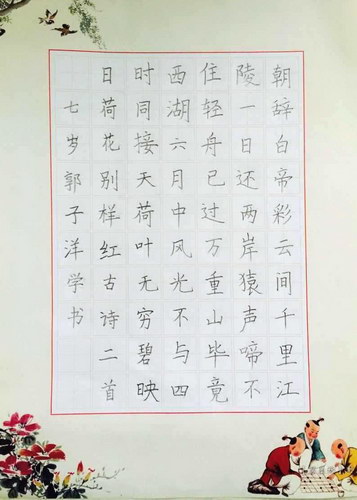 朝辞白帝彩云间千里江
陵一日还两岸猿声啼不
住轻舟已过万重山毕竟
西湖六月中风光不与四
时同接天荷叶无穷碧映
日荷花别样红古诗二首
七岁郭子洋学书